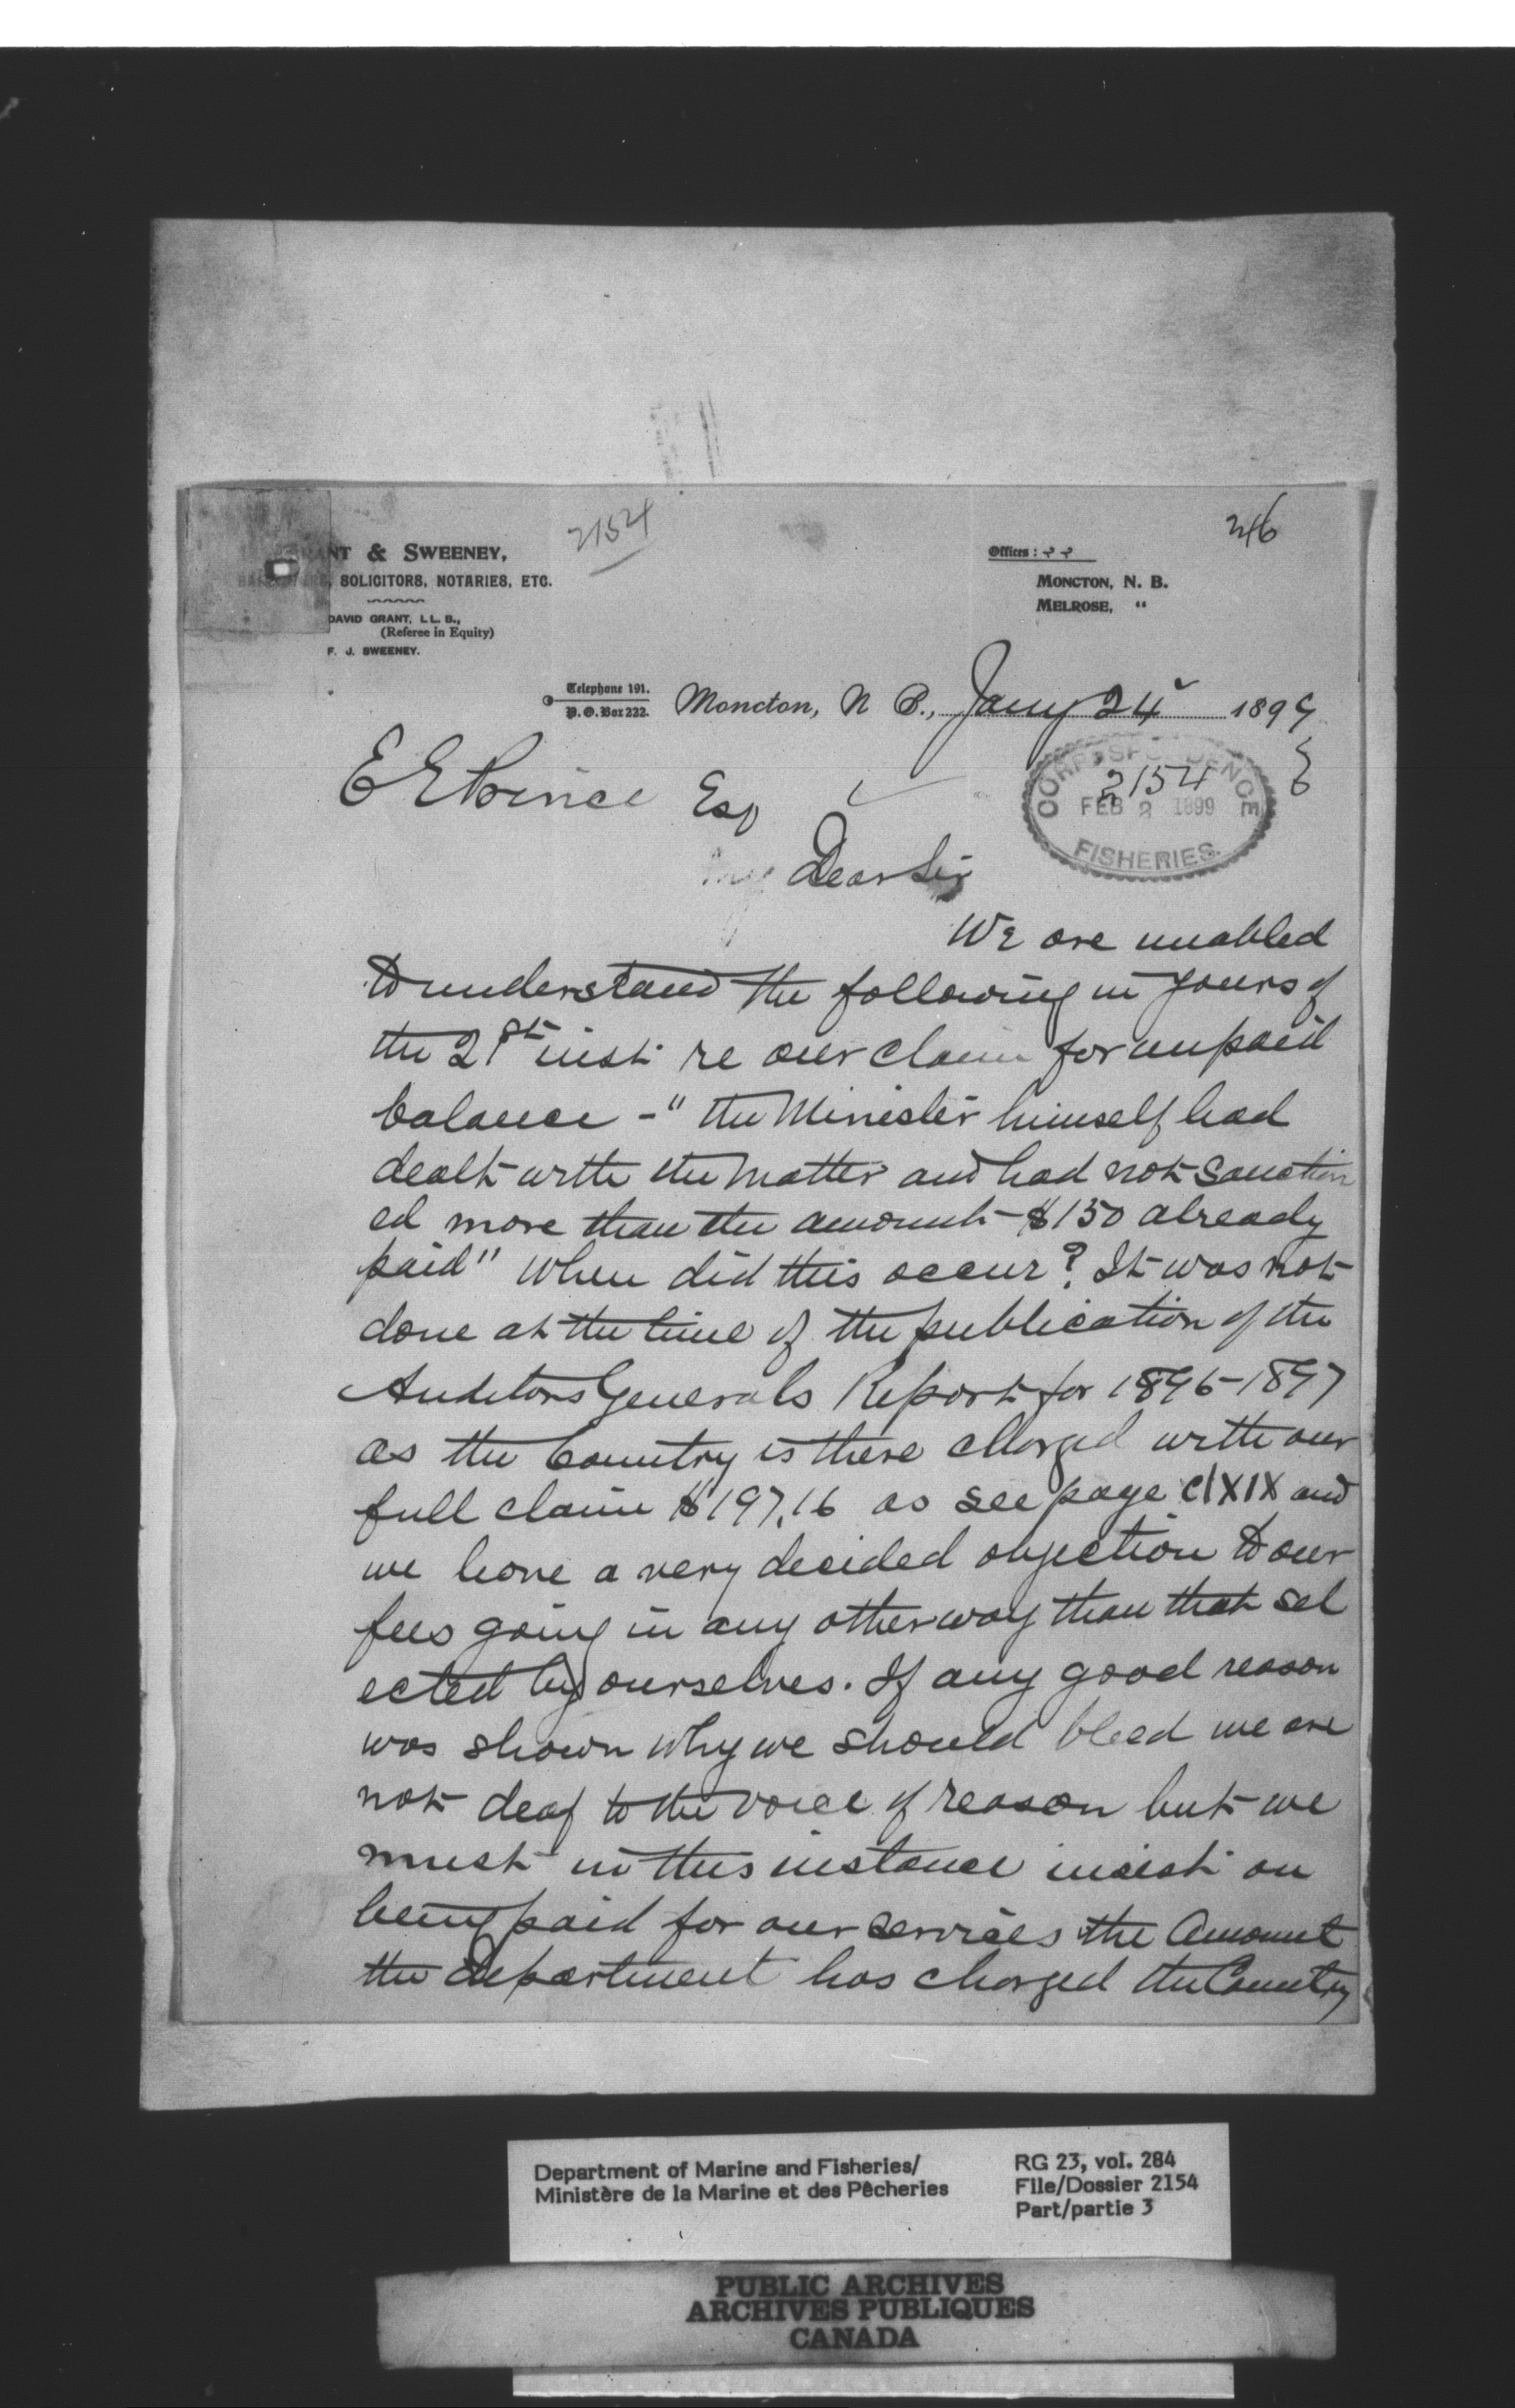 2154
246
ANT & SWEENEY,
SOLICITORS, NOTARIES, ETC.
DAVID GRANT, LL. B.,
(Referee in Equity)
F. J. SWEENEY.
Offices:
MONCTON, N. B.
MELROSE, "
Telephone 191.
P. O. Box 222.
Moncton, N B., Jany 24 1899
E E Prince Esq
CORRESPONDENCE
2154
FEB 2 1899
FISHERIES.
My Dear Sir
We are unabled
to understand the following in yours of
the 21st inst re our claim for unpaid
balance - " the Minister himself had
dealt with the matter and had not sanction
ed more than the amount $150 already
paid" When did this occur? It was not
done at the time of the publication of the
Auditors Generals Report for 1896-1897
as the Country is there charged with our
full claim $197.16 as see page clXIX and
we have a very decided objection to our
fees going in any other way than that sel
ected by ourselves. If any good reason
was shown why we should bleed we are
not deaf to the voice of reason but we
must in this instance insist on
being paid for our services the amount
the department has charged the Country
Department of Marine and Fisheries/
Ministère de la Marine et des Pêcheries
RG 23, vol. 284
File/Dossier 2154
Part/partie 3
PUBLIC ARCHIVES
ARCHIVES PUBLIQUES
CANADA